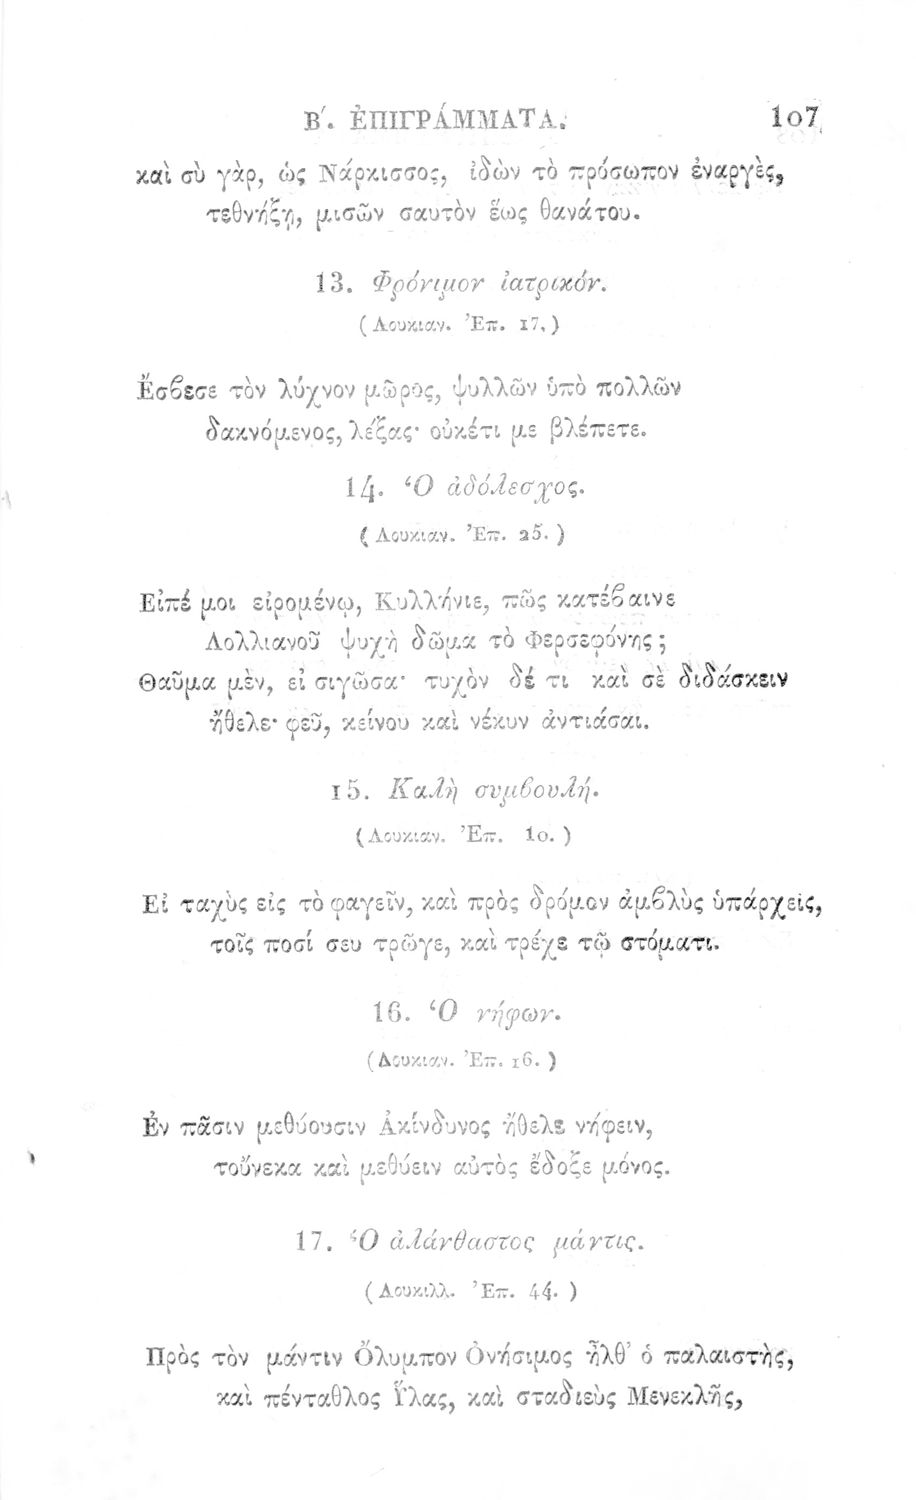 Β΄. ἘΠΙΓΡΆΜΜΑΤΑ. 107
καὶ σὺ γὰρ, ὡς Νάρκισσος, ἰδὼν τὸ πρόσωπον ἐναργὲς,
τεθνήξῃ, μισῶν σαυτὸν ἕως θανάτου.
13. Φρόνιμον ἰατρικόν.
(Λουκιαν. Ἐπ. 17.)
Ἔσϐεσε τὸν λύχνον μῶρος, ψυλλῶν ὑπὸ πολλῶν
δακνόμενος, λέξας· οὐκέτι με βλέπετε.
14. Ὁ ἀδόλεσχος.
(Λουκιαν. Ἐπ. 25.)
Εἰπέ μοι εἰρομένῳ, Κυλλήνιε, πῶς κατέϐαινε
Λολλιανοῦ ψυχὴ δῶμα τὸ Φερσεφόνης;
Θαῦμα μὲν, εἰ σιγῶσα· τυχὸν δέ τι καὶ σὲ διδάσκειν
ἤθελε· φεῦ, κείνου καὶ νέκυν ἀντιάσαι.
15. Καλὴ συμϐουλή.
(Λουκιαν. Ἐπ. 10.)
Εἰ ταχὺς εἰς τὸ φαγεῖν, καὶ πρὸς δρόμον ἀμϐλὺς ὑπάρχεις,
τοῖς ποσί σευ τρῶγε, καὶ τρέχε τῷ στόματι.
16. Ὁ νήφων.
(Λουκιαν. Ἐπ. 16.)
Ἐν πᾶσιν μεθύουσιν Ἀκίνδυνος ἤθελε νήφειν,
τοὔνεκα καὶ μεθύειν αὐτὸς ἔδοξε μόνος.
17. Ὁ ἀλάνθαστος μάντις.
(Λουκιλλ. Ἐπ. 44.)
Πρὸς τὸν μάντιν Ὄλυμπον Ὀνήσιμος ἦλθ’ ὁ παλαιστὴς,
καὶ πένταθλος Ὕλας, καὶ σταδιεὺς Μενεκλῆς,